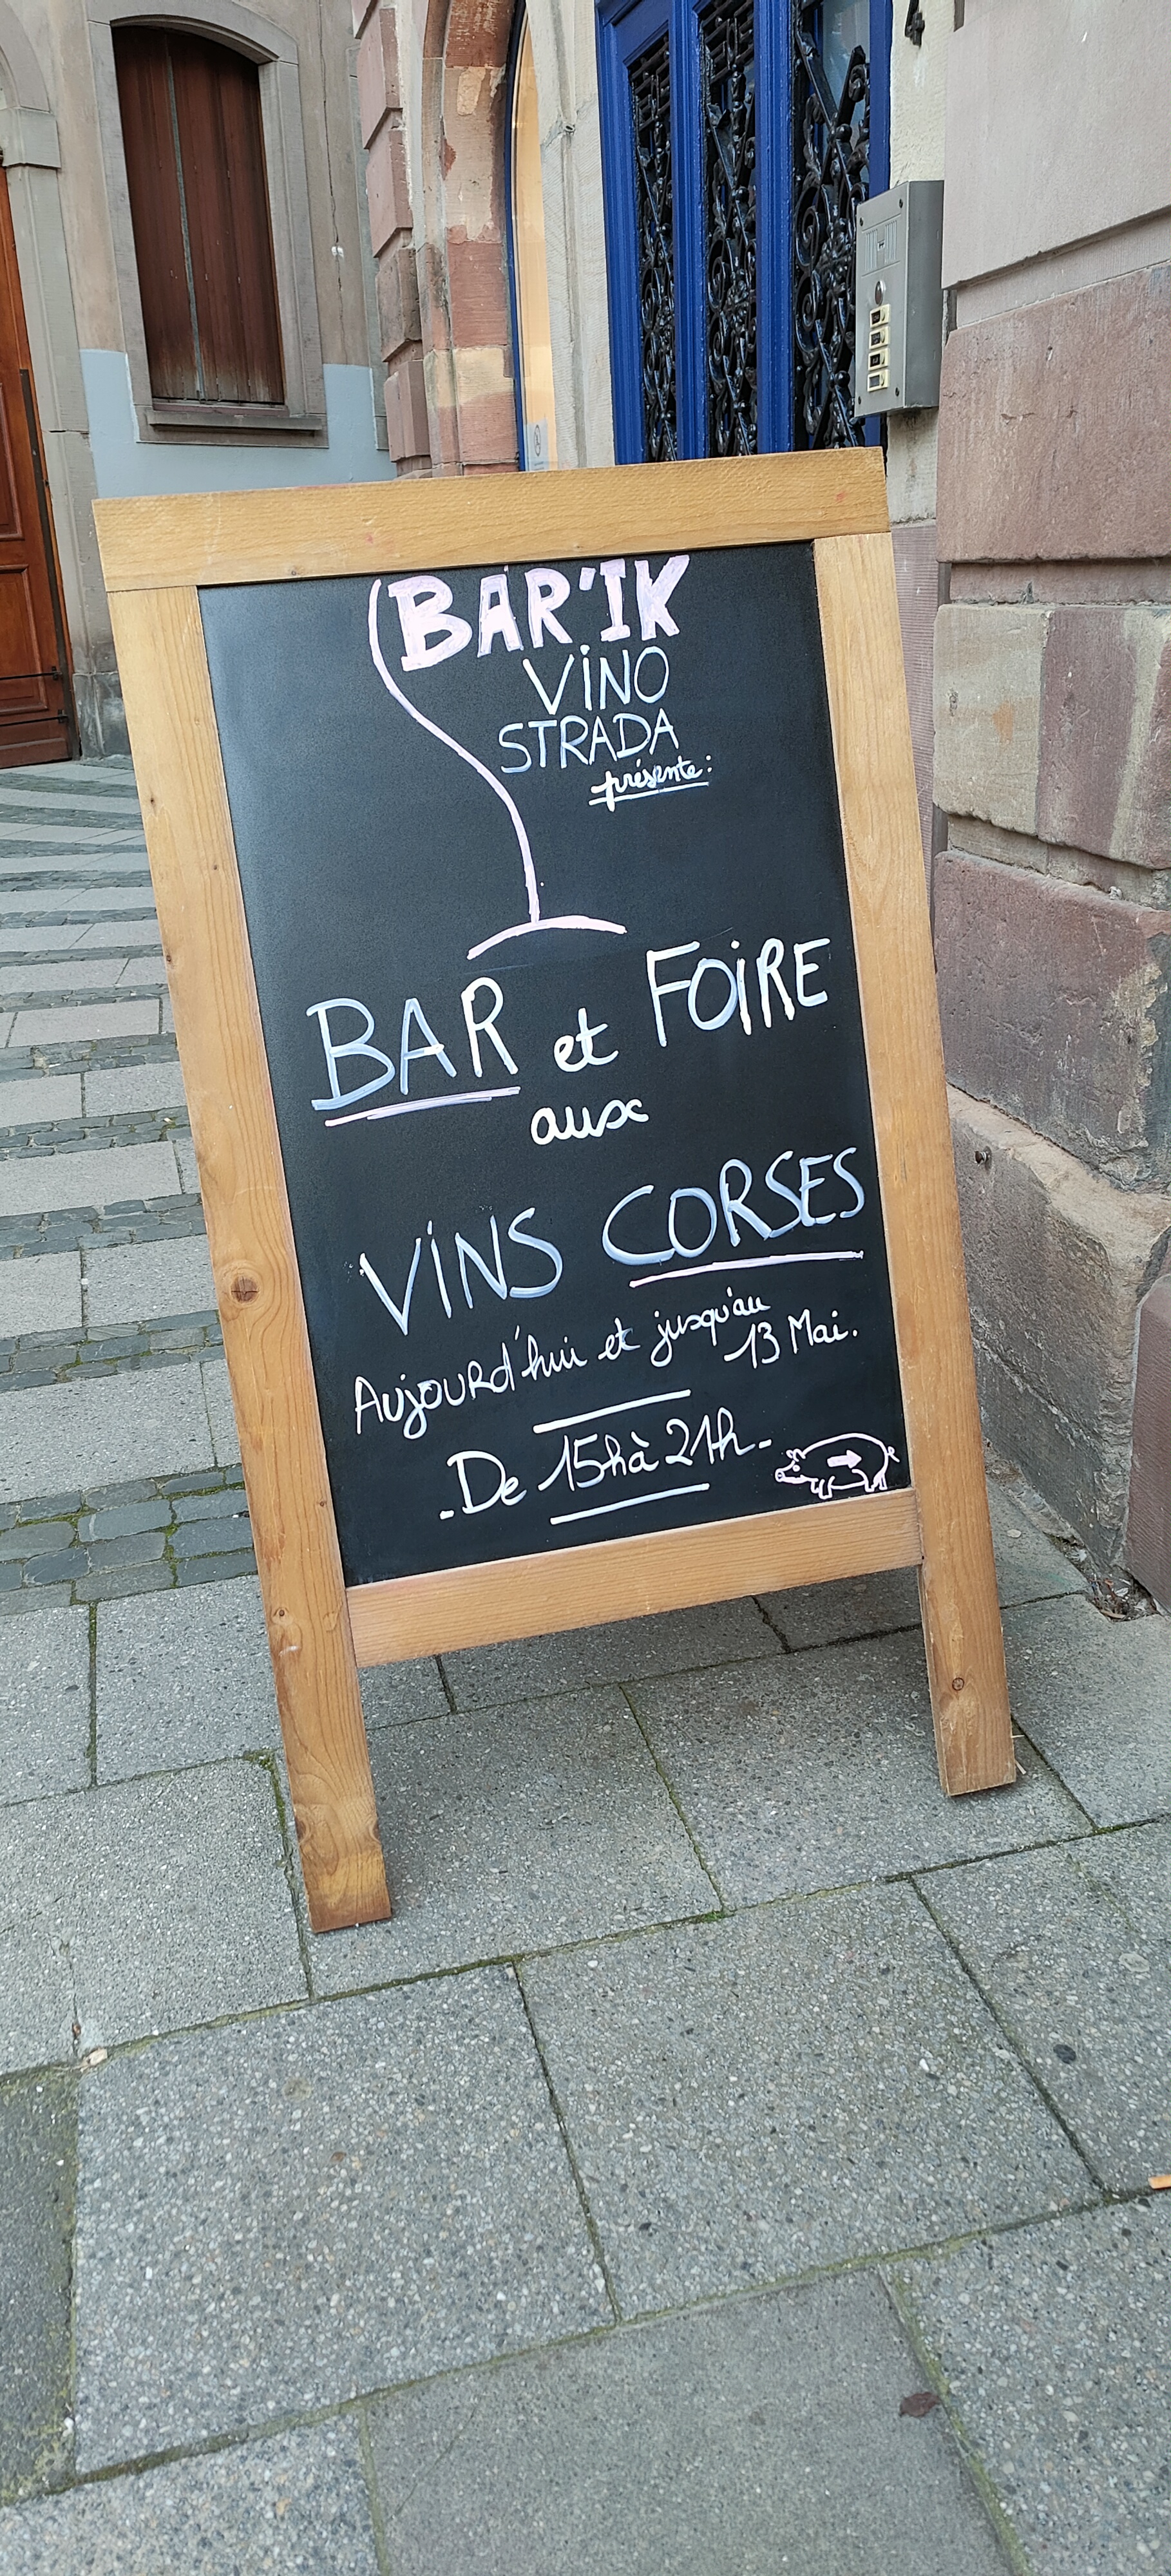 BAR'IK
VINO
STRADA
présente:
BAR et FOIRE
aux
VINS CORSES
Aujourd'hui et jusqu'au
13 Mai.
-De 15h à 21h-